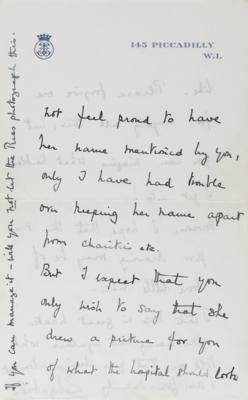 145 PICCADILLY
W.1.
not feel proud to have
her name mentioned by you,
only I have had trouble
over keeping her name apart
from charities etc.
But I expect that you
only wish to say that she
drew a picture for you
of what the hospital should look
If you can manage it – will you not let the Press photograph this.